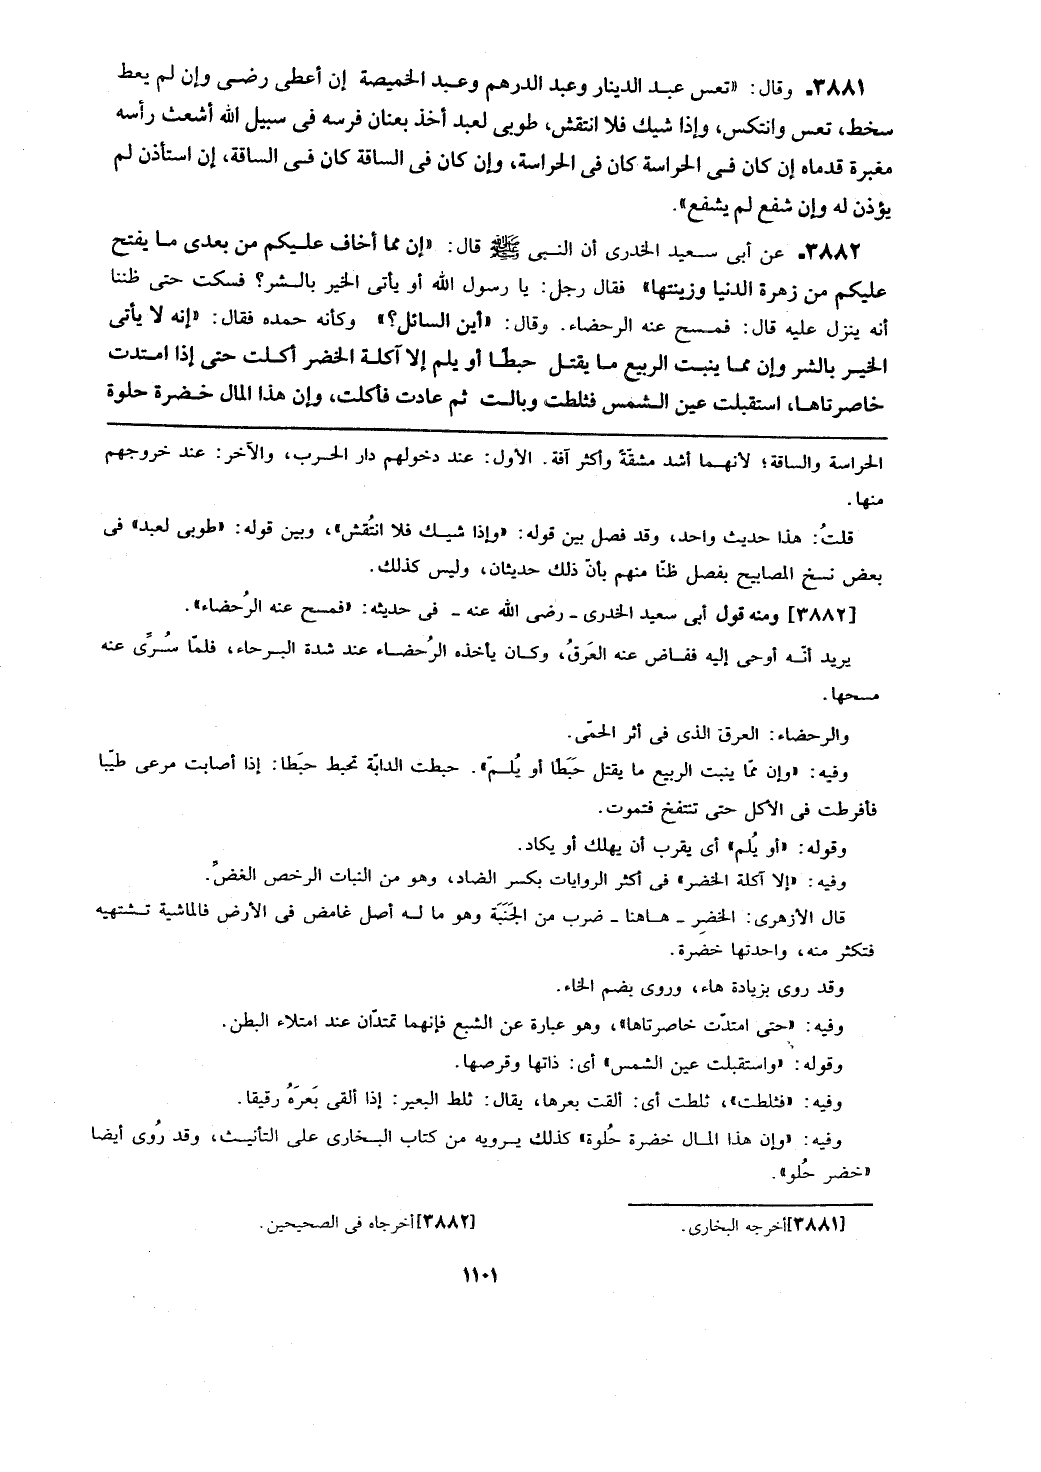 ٣٨٨١ـ وقال: «تعس عبد الدينار وعبد الدرهم وعبد الخميصة إن أعطى رضى وإن لم يعط
سخط، تعس وانتكس، وإذا شيك فلا انتقش، طوبى لعبد أخذ بعنان فرسه فى سبيل الله أشعث رأسه
مغبرة قدماه إن كان فى الحراسة كان فى الحراسة، وإن كان فى الساقة كان فى الساقة، إن استأذن لم
يؤذن له وإن شفع لم يشفع».
٣٨٨٢ـ عن أبى سعيد الخدرى أن النبى ﷺ قال: «إن مما أخاف عليكم من بعدى ما يفتح
عليكم من زهرة الدنيا وزينتها» فقال رجل: يا رسول الله أو يأتى الخير بالشر؟ فسكت حتى ظننا
أنه ينزل عليه قال: فمسح عنه الرحضاء. وقال: «أين السائل؟» وكأنه حمده فقال: «إنه لا يأتى
الخير بالشر وإن مما ينبت الربيع ما يقتل حبطًا أو يلم إلا آكلة الخضر أكلت حتى إذا امتدت
خاصرتاها، استقبلت عين الشمس فثلطت وبالت ثم عادت فأكلت، وإن هذا المال خضرة حلوة
الحراسة والساقة؛ لأنهما أشد مشقةً وأكثر آفة. الأول: عند دخولهم دار الحرب، والآخر: عند خروجهم
منها.
قلتُ: هذا حديث واحد، وقد فصل بين قوله: «وإذا شيك فلا انتُقش»، وبين قوله: «طوبى لعبد» فى
بعض نسخ المصابيح بفصل ظنّا منهم بأنّ ذلك حديثان، وليس كذلك.
[٣٨٨٢] ومنه قول أبى سعيد الخدرى ـ رضى الله عنه ـ فى حديثه: «فمسح عنه الرُحضاء».
يريد أنّه أوحى إليه ففاض عنه العَرقُ، وكان يأخذه الرُحضاء عند شدة البرحاء، فلمّا سُرِّى عنه
مسحها.
والرحضاء: العرق الذى فى أثر الحمّى.
وفيه: «وإن ممّا ينبت الربيع ما يقتل حَبَطًا أو يُلمّ». حبطت الدابّة تحبط حبَطا: إذا أصابت مرعى طيّبا
فأفرطت فى الأكل حتى تنتفخ فتموت.
وقوله: «أو يُلم» أى يقرب أن يهلك أو يكاد.
وفيه: «إلا آكلة الخضر» فى أكثر الروايات بكسر الضاد، وهو من النبات الرخص الغضّ.
قال الأزهرى: الخضِر ـ هاهنا ـ ضرب من الجَنَبَة وهو ما له أصل غامض فى الأرض فالماشية تشتهيه
فتكثر منه، واحدتها خضرة.
وقد روى بزيادة هاء، وروى بضم الخاء.
وفيه: «حتى امتدّت خاصرتاها»، وهو عبارة عن الشبع فإنهما تمتدّان عند امتلاء البطن.
وقوله: «واستقبلت عين الشمس» أى: ذاتها وقرصها.
وفيه: «فثلطت»، ثلطت أى: ألقت بعرها، يقال: ثلط البعير: إذا ألقى بَعرَهُ رقيقا.
وفيه: «وإن هذا المال خضرة حُلوة» كذلك يرويه من كتاب البخارى على التأنيث، وقد رُوى أيضا
«خضر حُلو».
[٣٨٨١]أخرجه البخارى.
[٣٨٨٢]أخرجاه فى الصحيحين.
١١٠١